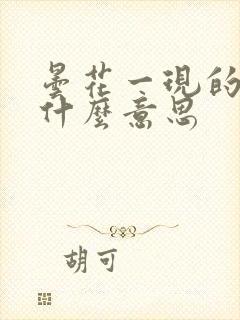 曇花一現的
什麼意思
胡可